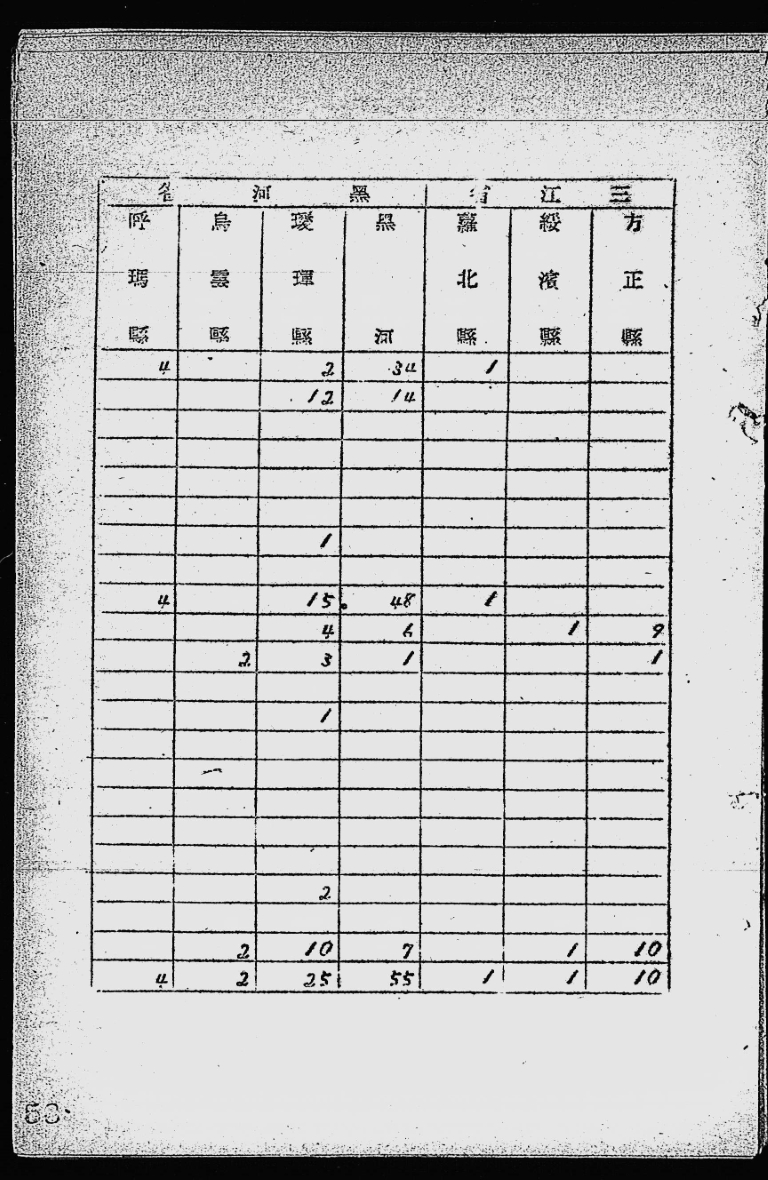 三江省 黑河省
方正縣 綏濱縣 蘿北縣 黑河 璦琿縣 烏雲縣 呼瑪縣
4 2 34 1
12 14
1
4 15 48 1
4 6 1 9
2 3 1 1
1
2
2 10 7 1 10
4 2 25 55 1 1 10